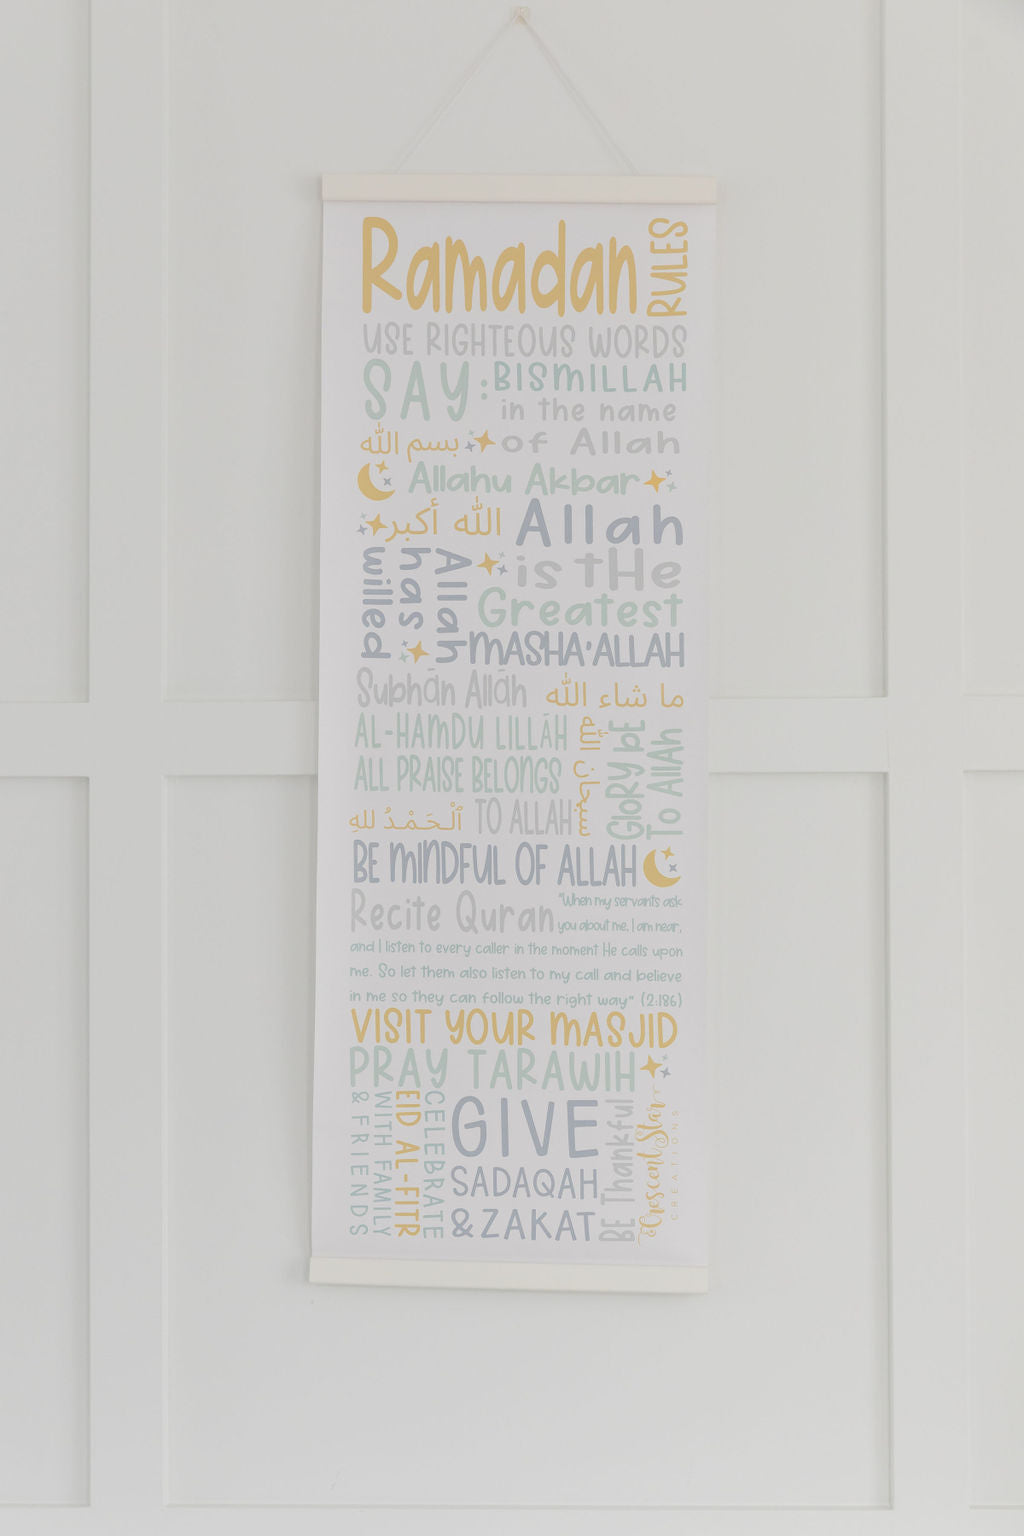 Ramadan RULES
USE RIGHTEOUS WORDS
SAY: BISMILLAH
in the name
بسم الله of Allah
Allahu Akbar
الله أكبر Allah
is tHe
Greatest
Allah
has
willed
MASHA'ALLAH
Subhān Allāh ما شاء الله
AL-HAMDU LILLĀH
ALL PRAISE BELONGS
ٱلْحَمْدُ للهِ TO ALLAH
سبحان الله
GloRY bE
To AllAh
BE MINDFUL OF ALLAH
Recite Quran "When my servants ask
you about me, I am near,
and I listen to every caller in the moment He calls upon
me. So let them also listen to my call and believe
in me so they can follow the right way" (2:186)
VISIT YOUR MASJID
PRAY TARAWIH
CELEBRATE
EID AL-FITR
WITH FAMILY
& FRIENDS
GIVE
SADAQAH
& ZAKAT
BE Thankful
Crescent Star
CREATIONS